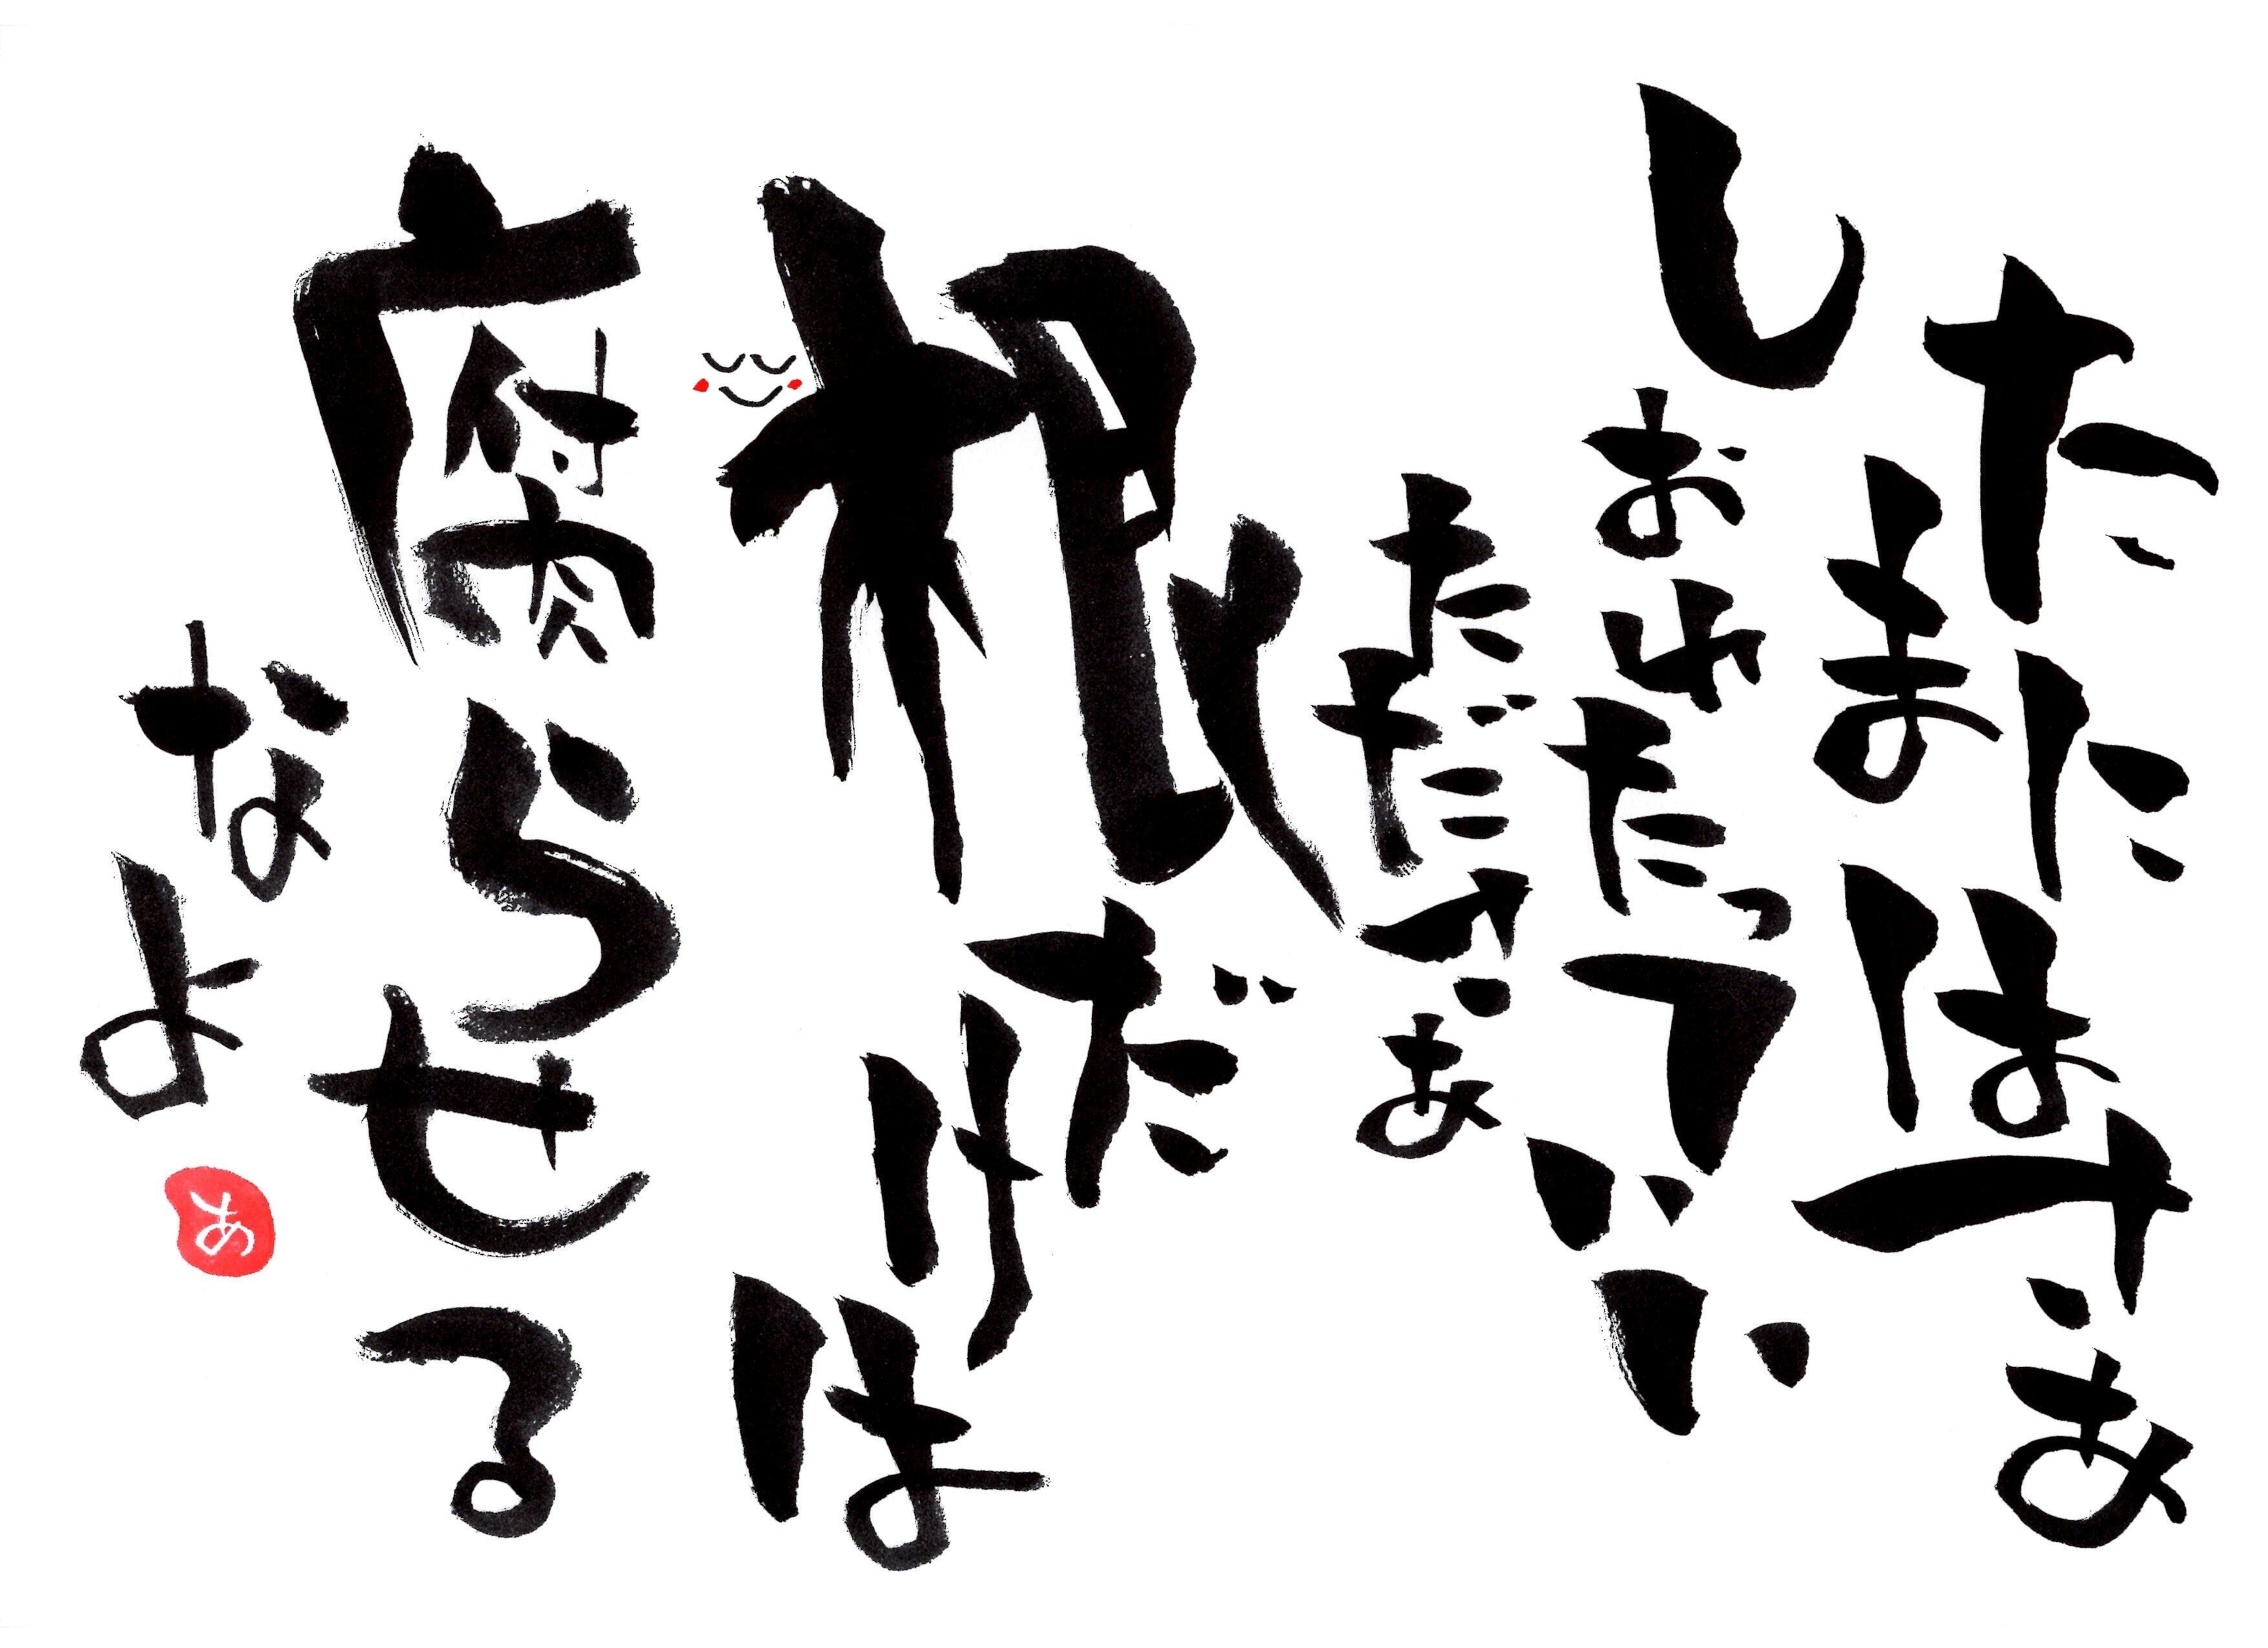 たまにはさぁ
しおれたっていい
たださぁ
根だけは
腐らせる
なよ
あ